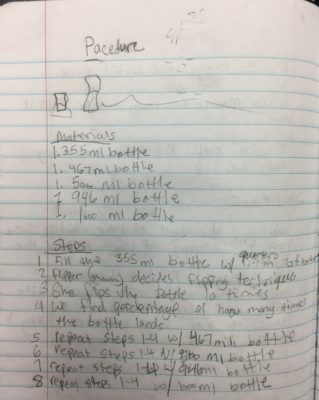 Pacedure
Materials
1. 355 ml bottle
1. 467 ml bottle
1. 500 ml bottle
1. 946 ml bottle
1. 1000 ml bottle
Steps
1 Fill the 355 ml bottle w/ of bottle
2 Flipper decides flipping technique
3 She flips the bottle 10 times
4 We find percentage of how many times
the bottle lands
5 repeat steps 1-4 w/ 467 ml bottle
6 repeat steps 1-4 w/ 500 ml bottle
7 repeat steps 1-4 w/ 946 ml bottle
8 repeat steps 1-4 w/ 1000 ml bottle